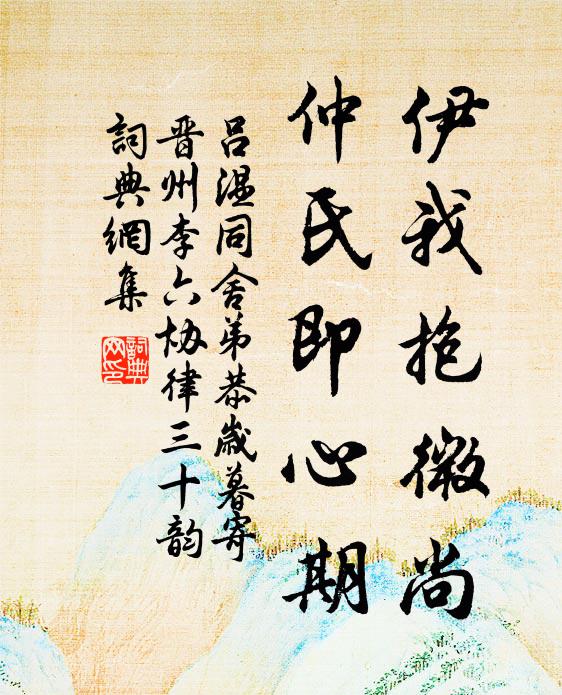 伊我抱微尚
仲氏即心期
吕温同舍弟恭歲暮寄
晋州李六协律三十韵
詞典網集
詞典
网印